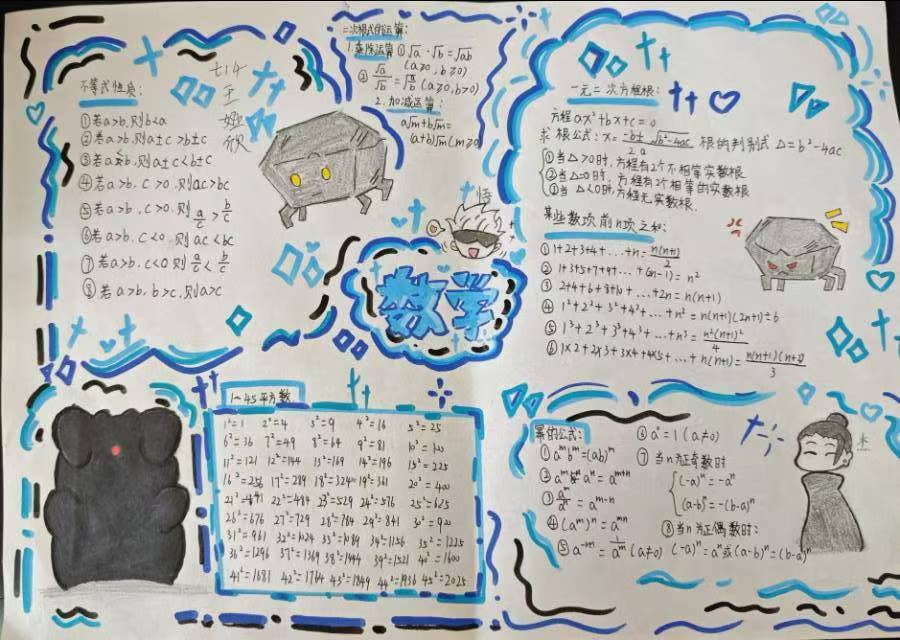 不等式性质:
①若a>b,则b<a
②若a>b,则a±c>b±c
③若a>b,则a±c<b±c
④若a>b.c>0.则ac>bc
⑤若a>b,c>0,则a/c>b/c
⑥若a>b.c<0.则ac<bc
⑦若a>b.c<0则a/c<b/c
⑧若a>b,b>c,则a>c
七14
王
娅
欣
二次根式的运算:
1.乘除运算①√a·√b=√ab
(a≥0,b≥0)
②√a/√b=√(a/b)(a≥0,b>0)
2.加减运算:
a√m+b√m=
(a+b)√m(m≥0)
悟
数学
一元二次方程根:
方程ax²+bx+c=0
求根公式:x=(-b±√b²-4ac)/2a 根的判别式△=b²-4ac
①当△>0时,方程有2个不相等实数根
②当△=0时,方程有2个相等的实数根
③当△<0时,方程无实数根.
某些数项前n项之和:
①1+2+3+4+...+n=n(n+1)/2
②1+3+5+7+9+...+(2n-1)=n²
③2+4+6+8+10+...+2n=n(n+1)
④1²+2²+3²+4²+...+n²=n(n+1)(2n+1)÷6
⑤1³+2³+3³+4³+...+n³=n²(n+1)²/4
⑥1×2+2×3+3×4+4×5+...+n(n+1)=n(n+1)(n+2)/3
1~45平方数
1²=1 2²=4 3²=9 4²=16 5²=25
6²=36 7²=49 8²=64 9²=81 10²=100
11²=121 12²=144 13²=169 14²=196 15²=225
16²=256 17²=289 18²=324 19²=361 20²=400
21²=441 22²=484 23²=529 24²=576 25²=625
26²=676 27²=729 28²=784 29²=841 30²=900
31²=961 32²=1024 33²=1089 34²=1156 35²=1225
36²=1296 37²=1369 38²=1444 39²=1521 40²=1600
41²=1681 42²=1764 43²=1849 44²=1936 45²=2025
幂的公式:
①aᵐbᵐ=(ab)ᵐ
②aᵐaⁿ=aᵐ⁺ⁿ
③aᵐ/aⁿ=aᵐ⁻ⁿ
④(aᵐ)ⁿ=aᵐⁿ
⑤a⁻ᵐ=1/aᵐ(a≠0)
⑥a⁰=1(a≠0)
⑦当n为正奇数时
(-a)ⁿ=-aⁿ
(a-b)ⁿ=-(b-a)ⁿ
⑧当n为正偶数时:
(-a)ⁿ=aⁿ或(a-b)ⁿ=(b-a)ⁿ
杰